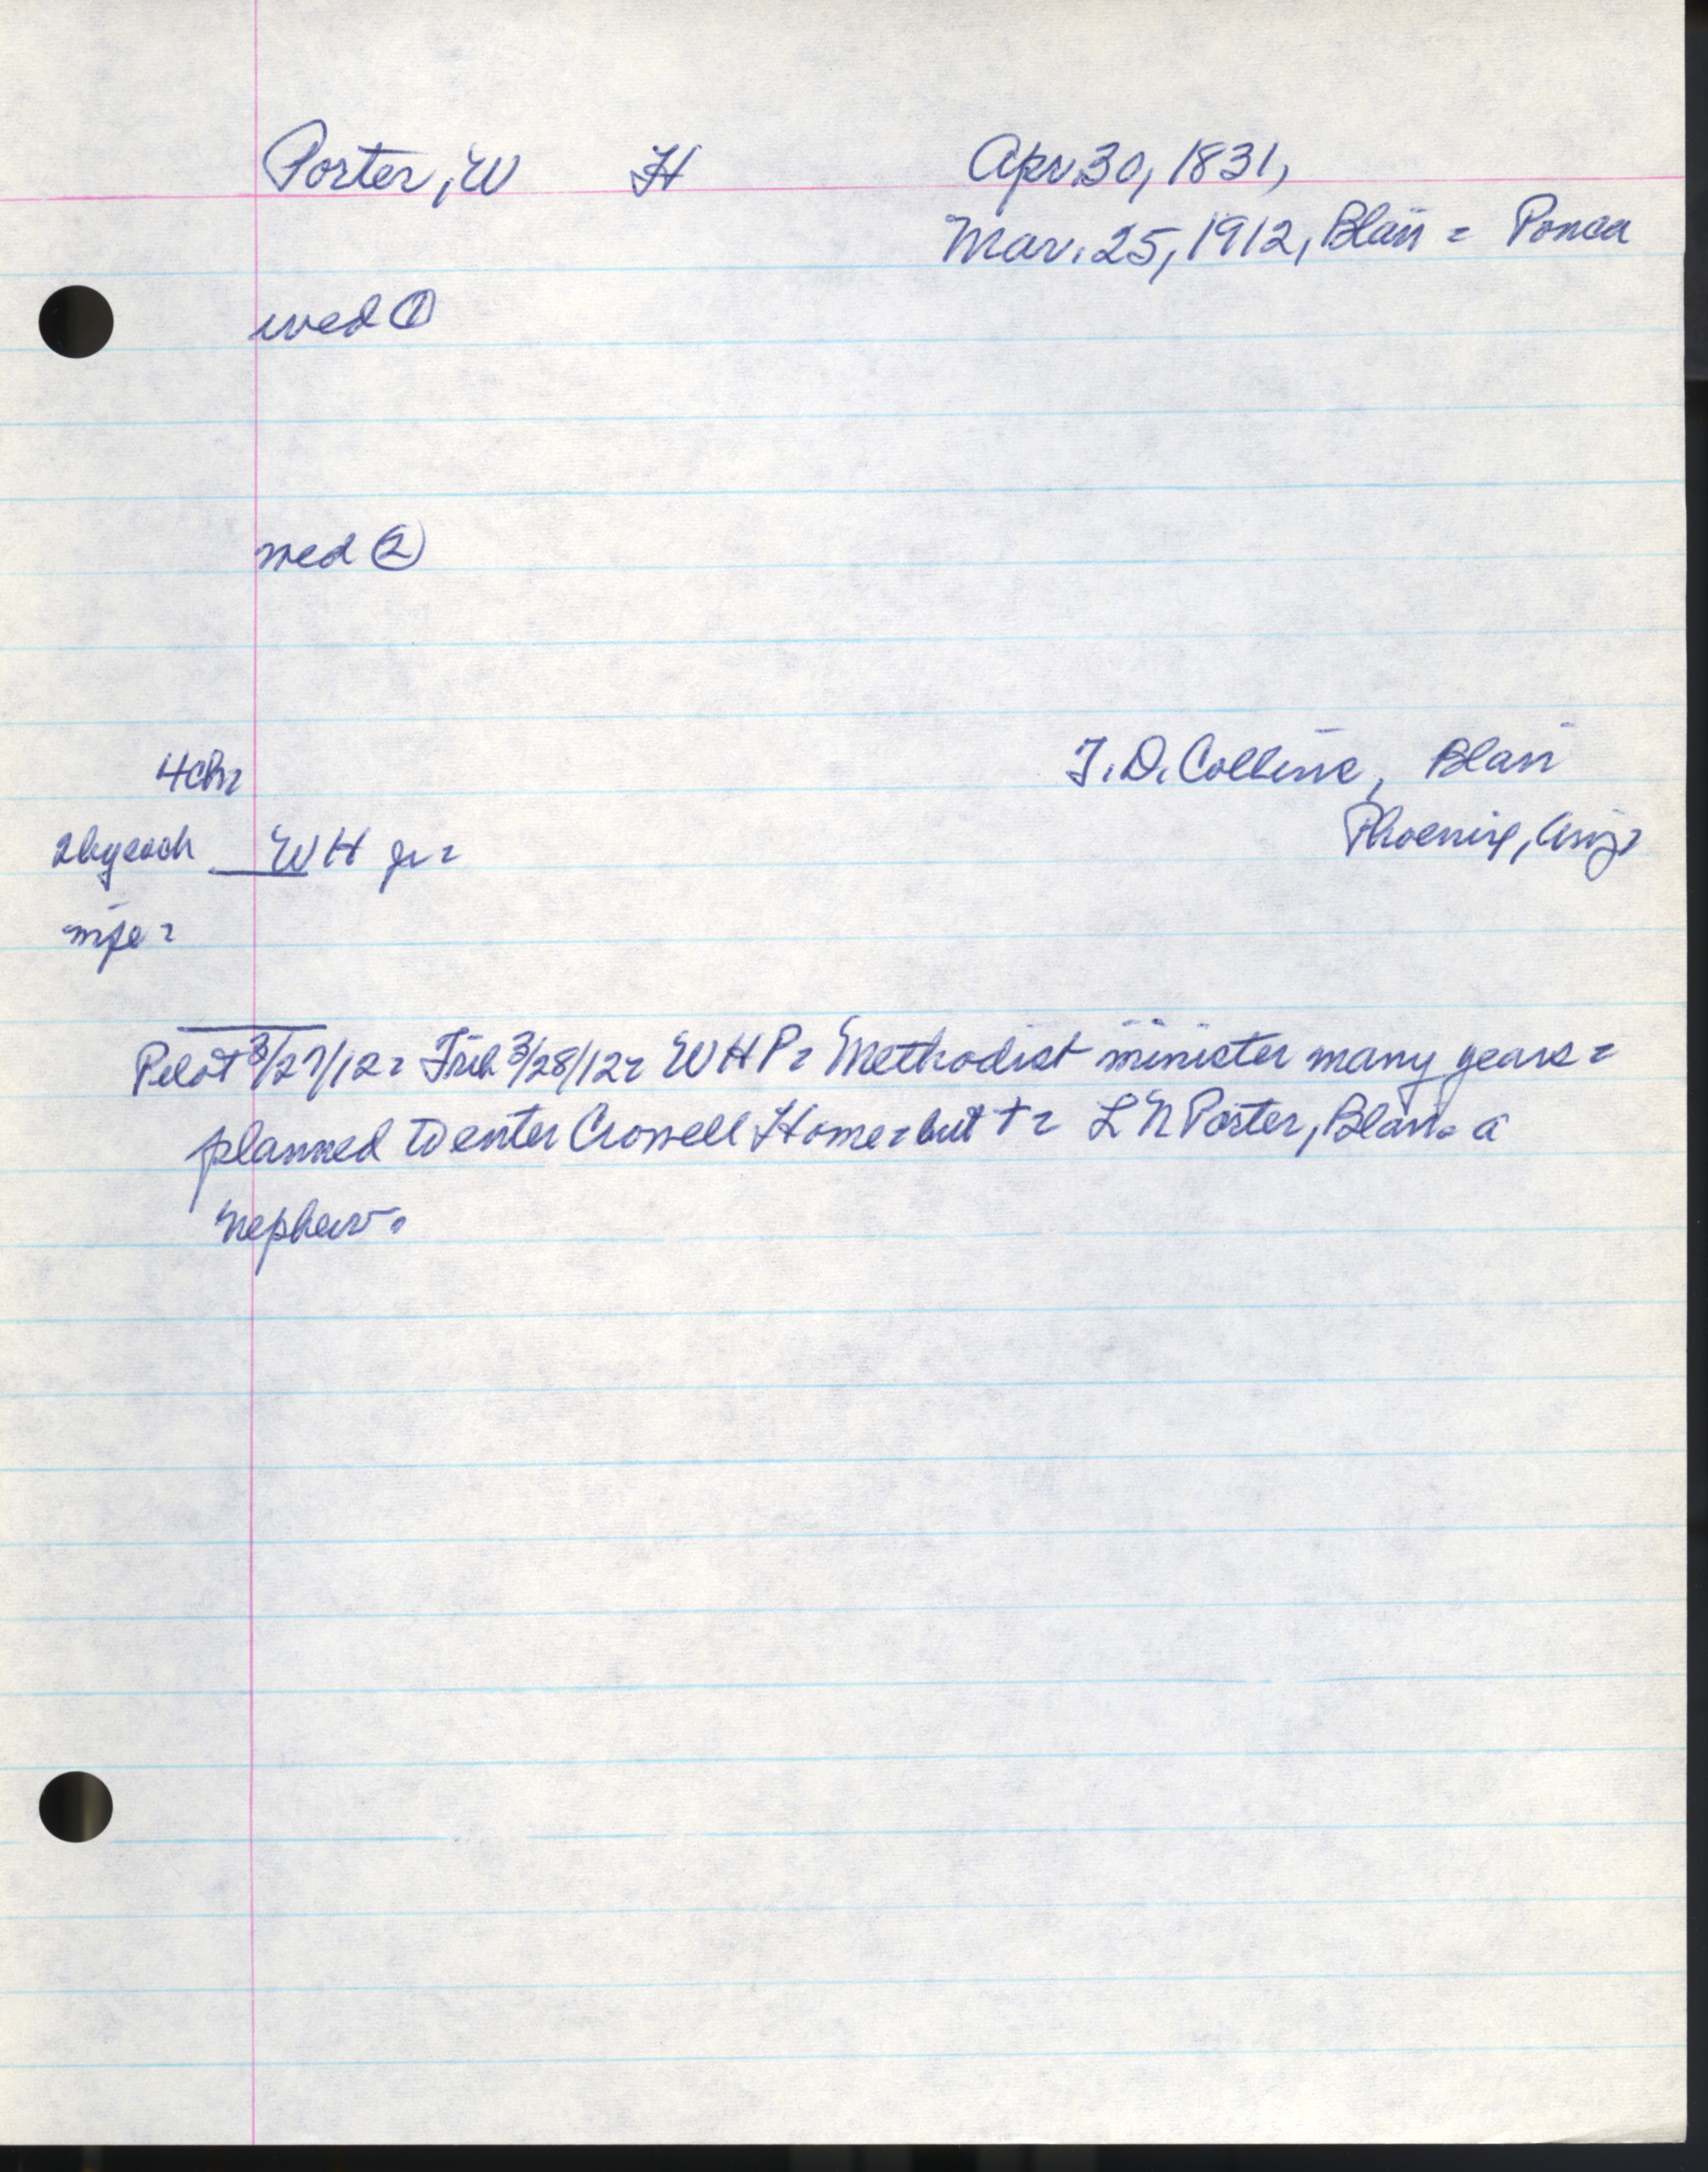 Porter, W H Apr. 30, 1831,
Mar. 25, 1912, Blair = Ponca
wed ①
wed ②
4 ch= T. D. Collins, Blair
2 by each W H jr = Phoenix, Ariz=
wife =
Pilot 3/27/12 = Trib 3/28/12 = W H P = Methodist minister many years =
planned to enter Crowell Home = but † = L N Porter, Blair = a
nephew.